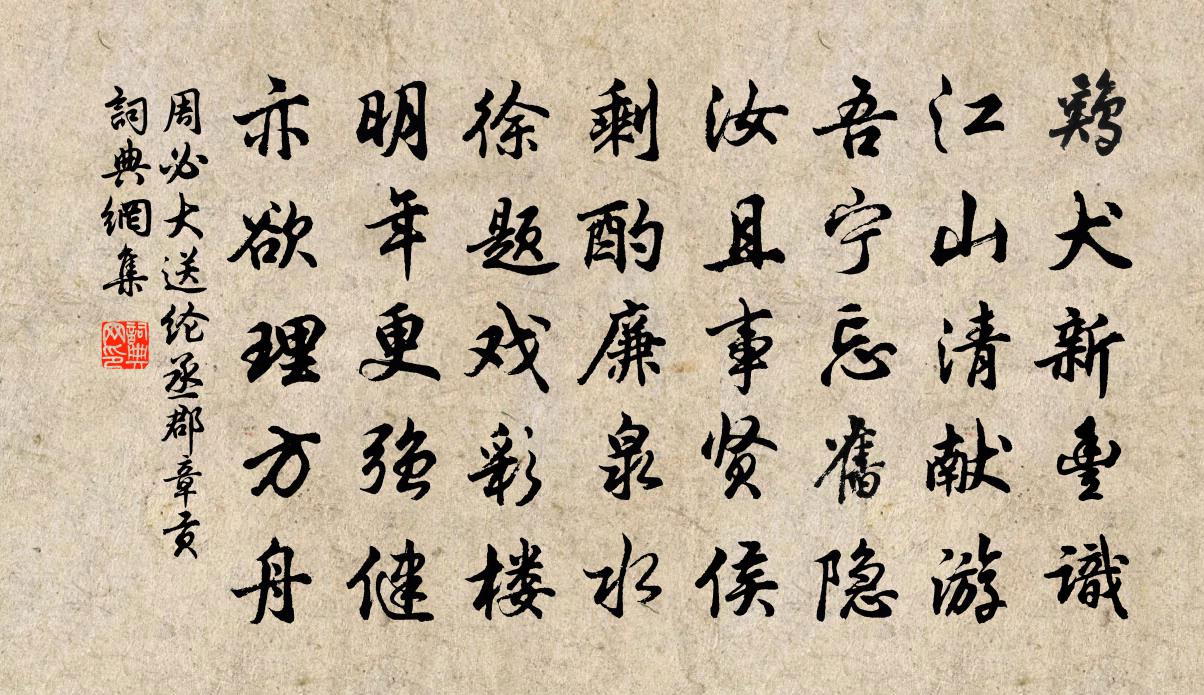 鷄犬新豊識
江山清献游
吾宁忘舊隐
汝且事贤侯
剩酌廉泉水
徐题戏彩楼
明年更强健
亦欲理方舟
周必大送纶丞郡章贡
詞典網集
詞典网印